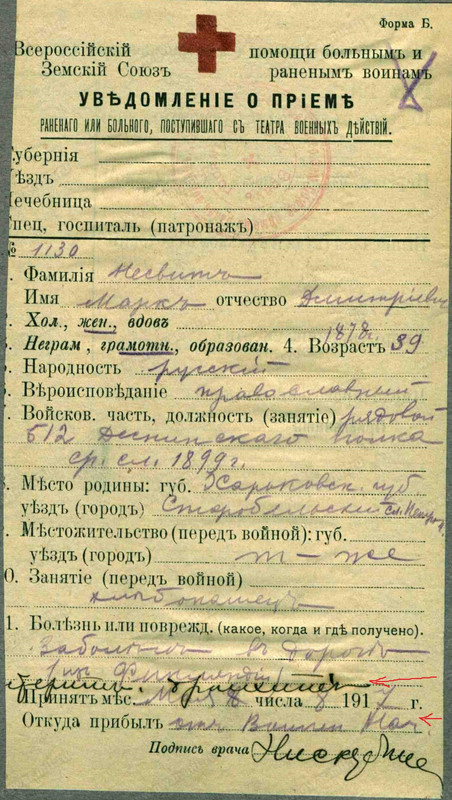 Форма Б.
Всероссійскій
Земскій Союзъ
помощи больнымъ и
раненымъ воинамъ
УВѢДОМЛЕНІЕ О ПРІЕМѢ
РАНЕНАГО ИЛИ БОЛЬНОГО, ПОСТУПИВШАГО СЪ ТЕАТРА ВОЕННЫХЪ ДѢЙСТВІЙ.
Губернія
Уѣздъ
Лечебница
Спец. госпиталь (патронажъ)
№ 1130
1. Фамилія Несвитъ
Имя Маркъ отчество Дмитріевъ
Хол., жен., вдовъ
1878г.
3. Неграм, грамотн., образован. 4. Возрастъ 39
5. Народность русскій
6. Вѣроисповѣданіе православный
7. Войсков. часть, должность (занятіе) рядовой
512 полка
ср. сл. 1899 г.
8. Мѣсто родины: губ. Харьковск. губ
уѣздъ (городъ) Старобѣльскій сл.
9. Мѣстожительство (передъ войной): губ.
уѣздъ (городъ) т - же
10. Занятіе (передъ войной)
хлѣбопашецъ
11. Болѣзнь или поврежд. (какое, когда и гдѣ получено).
Заболѣлъ въ
Финляндіи
Принятъ мѣс. Мая числа 8 1917 г.
Откуда прибылъ
Подпись врача